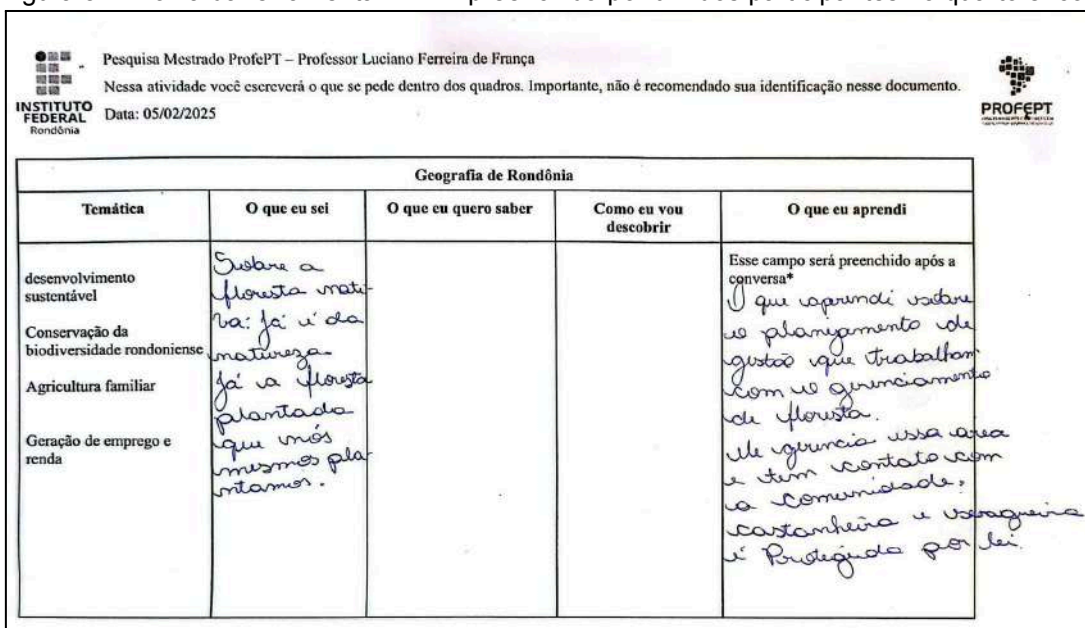 Pesquisa Mestrado ProfePT – Professor Luciano Ferreira de França
Nessa atividade você escreverá o que se pede dentro dos quadros. Importante, não é recomendado sua identificação nesse documento.
INSTITUTO
FEDERAL
Rondônia
Data: 05/02/2025
PROFEPT
Geografia de Rondônia
Temática
O que eu sei
O que eu quero saber
Como eu vou
descobrir
O que eu aprendi
desenvolvimento
sustentável
Conservação da
biodiversidade rondoniense
Agricultura familiar
Geração de emprego e
renda
Sobre a
floresta nati-
va: já é da
natureza
já a floresta
plantada
que nós
mesmos pla-
ntamos.
Esse campo será preenchido após a
conversa*
O que aprendi sobre
o planejamento de
gestão que trabalham
com o gerenciamento
de floresta.
ele gerencia essa area
e tem contato com
a comunidade,
castanheira e seragueira
é Protegida por lei.